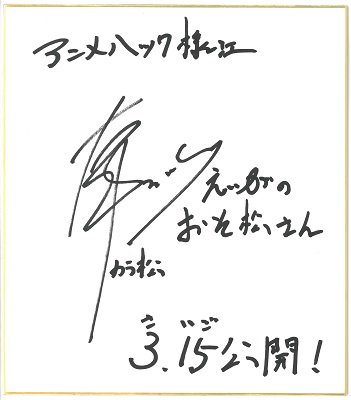 アニメハック様江
えいがの
おそ松さん
カラ松
3.15公開!